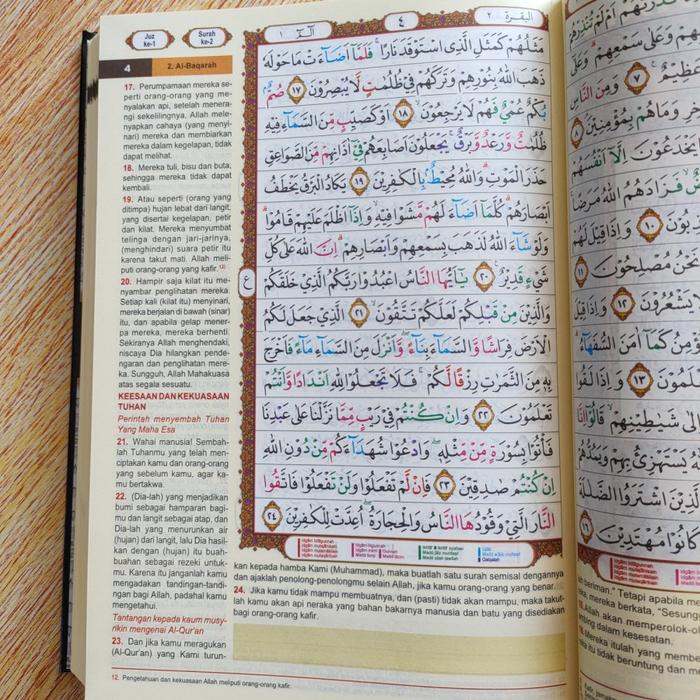 Juz
ke-1
Surah
ke-2
4
2. Al-Baqarah
17. Perumpamaan mereka se-
perti orang-orang yang me-
nyalakan api, setelah menera-
ngi sekelilingnya, Allah mele-
nyapkan cahaya (yang menyi-
nari) mereka dan membiarkan
mereka dalam kegelapan, tidak
dapat melihat.
18. Mereka tuli, bisu dan buta,
sehingga mereka tidak dapat
kembali.
19. Atau seperti (orang yang
ditimpa) hujan lebat dari langit,
yang disertai kegelapan, petir
dan kilat. Mereka menyumbat
telinga dengan jari-jarinya,
(menghindari) suara petir itu
karena takut mati. Allah meli-
puti orang-orang yang kafir.12)
20. Hampir saja kilat itu me-
nyambar penglihatan mereka.
Setiap kali (kilat itu) menyinari,
mereka berjalan di bawah (sinar)
itu, dan apabila gelap mener-
pa mereka, mereka berhenti.
Sekiranya Allah menghendaki,
niscaya Dia hilangkan pende-
ngaran dan penglihatan mere-
ka. Sungguh, Allah Mahakuasa
atas segala sesuatu.
KEESAAN DAN KEKUASAAN
TUHAN
Perintah menyembah Tuhan
Yang Maha Esa
21. Wahai manusia! Sembah-
lah Tuhanmu yang telah men-
ciptakan kamu dan orang-orang
yang sebelum kamu, agar ka-
mu bertakwa.
22. (Dia-lah) yang menjadikan
bumi sebagai hamparan bagi-
mu dan langit sebagai atap, dan
Dia-lah yang menurunkan air
(hujan) dari langit, lalu Dia hasil-
kan dengan (hujan) itu buah-
buahan sebagai rezeki untuk-
mu. Karena itu janganlah kamu
mengadakan tandingan-tandi-
ngan bagi Allah, padahal kamu
mengetahui.
Tantangan kepada kaum musy-
rikin mengenai Al-Qur'an
23. Dan jika kamu meragukan
(Al-Qur'an) yang Kami turun-
البقرة ٢
٤
الٓمّٓ ١
مَثَلُهُمْ كَمَثَلِ الَّذِى اسْتَوْقَدَ نَارًا ۚ فَلَمَّآ اَضَاۤءَتْ مَا حَوْلَهٗ
ذَهَبَ اللّٰهُ بِنُوْرِهِمْ وَتَرَكَهُمْ فِيْ ظُلُمٰتٍ لَّا يُبْصِرُوْنَ ١٧ صُمٌّ ۢ
بُكْمٌ عُمْيٌ فَهُمْ لَا يَرْجِعُوْنَ ۙ ١٨ اَوْ كَصَيِّبٍ مِّنَ السَّمَاۤءِ فِيْهِ
ظُلُمٰتٌ وَّرَعْدٌ وَّبَرْقٌ ۚ يَجْعَلُوْنَ اَصَابِعَهُمْ فِيْٓ اٰذَانِهِمْ مِّنَ الصَّوَاعِقِ
حَذَرَ الْمَوْتِ ۗ وَاللّٰهُ مُحِيْطٌ ۢ بِالْكٰفِرِيْنَ ١٩ يَكَادُ الْبَرْقُ يَخْطَفُ
اَبْصَارَهُمْ ۗ كُلَّمَآ اَضَاۤءَ لَهُمْ مَّشَوْا فِيْهِ ۙ وَاِذَآ اَظْلَمَ عَلَيْهِمْ قَامُوْا ۗ
وَلَوْ شَاۤءَ اللّٰهُ لَذَهَبَ بِسَمْعِهِمْ وَاَبْصَارِهِمْ ۗ اِنَّ اللّٰهَ عَلٰى كُلِّ
شَيْءٍ قَدِيْرٌ ࣖ ٢٠ يٰٓاَيُّهَا النَّاسُ اعْبُدُوْا رَبَّكُمُ الَّذِيْ خَلَقَكُمْ
وَالَّذِيْنَ مِنْ قَبْلِكُمْ لَعَلَّكُمْ تَتَّقُوْنَ ۙ ٢١ الَّذِيْ جَعَلَ لَكُمُ
الْاَرْضَ فِرَاشًا وَّالسَّمَاۤءَ بِنَاۤءً ۖ وَّاَنْزَلَ مِنَ السَّمَاۤءِ مَاۤءً فَاَخْرَجَ
بِهٖ مِنَ الثَّمَرٰتِ رِزْقًا لَّكُمْ ۚ فَلَا تَجْعَلُوْا لِلّٰهِ اَنْدَادًا وَّاَنْتُمْ
تَعْلَمُوْنَ ٢٢ وَاِنْ كُنْتُمْ فِيْ رَيْبٍ مِّمَّا نَزَّلْنَا عَلٰى عَبْدِنَا
فَأْتُوْا بِسُوْرَةٍ مِّنْ مِّثْلِهٖ ۖ وَادْعُوْا شُهَدَاۤءَكُمْ مِّنْ دُوْنِ اللّٰهِ
اِنْ كُنْتُمْ صٰدِقِيْنَ ٢٣ فَاِنْ لَّمْ تَفْعَلُوْا وَلَنْ تَفْعَلُوْا فَاتَّقُوا
النَّارَ الَّتِيْ وَقُوْدُهَا النَّاسُ وَالْحِجَارَةُ ۖ اُعِدَّتْ لِلْكٰفِرِيْنَ ٢٤
ع
kan kepada hamba Kami (Muhammad), maka buatlah satu surah semisal dengannya
dan ajaklah penolong-penolongmu selain Allah, jika kamu orang-orang yang benar.
24. Jika kamu tidak mampu membuatnya, dan (pasti) tidak akan mampu, maka takut-
lah kamu akan api neraka yang bahan bakarnya manusia dan batu yang disediakan
bagi orang-orang kafir.
12. Pengetahuan dan kekuasaan Allah meliputi orang-orang kafir.
وَعَلٰى سَمْعِهِمْ
عَظِيْمٌ ٧ وَمِنَ النَّاسِ
وَمَا هُمْ بِمُؤْمِنِيْنَ ٨
يَخْدَعُوْنَ اِلَّآ اَنْفُسَهُمْ
فَزَادَهُمُ اللّٰهُ مَرَضًا
١٠ وَاِذَا قِيْلَ لَهُمْ
نَحْنُ مُصْلِحُوْنَ ١١
يَشْعُرُوْنَ ١٢ وَاِذَا قِيْلَ
كَمَآ اٰمَنَ السُّفَهَاۤءُ
١٣ وَاِذَا لَقُوا
اِلٰى شَيٰطِيْنِهِمْ قَالُوْٓا اِنَّا
يَسْتَهْزِئُ بِهِمْ وَيَمُدُّهُمْ
اشْتَرَوُا الضَّلٰلَةَ
كَانُوْا مُهْتَدِيْنَ ١٦
beriman." Tetapi apabila m
mereka berkata, "Sesungg
Allah akan memperolok-o
dalam kesesatan.
Mereka itulah yang membe
itu tidak beruntung dan me